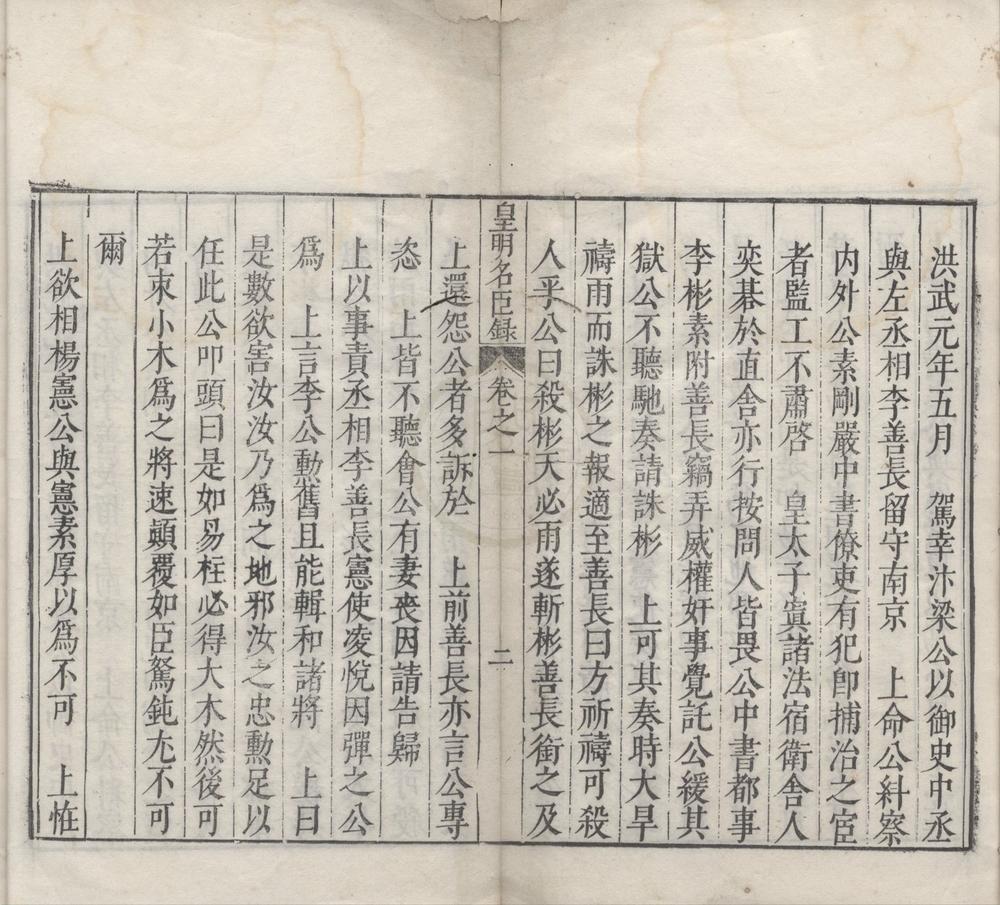 洪武元年五月　駕幸汴梁公以御史中丞
與左丞相李善長留守南京　上命公糾察
內外公素剛嚴中書僚吏有犯卽捕治之宦
者監工不肅啓　皇太子寘諸法宿衛舍人
奕碁於直舍亦行按問人皆畏公中書都事
李彬素附善長竊弄威權奸事覺託公緩其
獄公不聽馳奏請誅彬　上可其奏時大旱
禱雨而誅彬之報適至善長曰方祈禱可殺
人乎公曰殺彬天必雨遂斬彬善長銜之及
皇明名臣録　卷之一　二
上還怨公者多訴於　上前善長亦言公專
恣　上皆不聽會公有妻喪因請告歸
上以事責丞相李善長憲使凌悅因彈之公
爲　上言李公勳舊且能輯和諸將　上曰
是數欲害汝汝乃爲之地邪汝之忠勳足以
任此公叩頭曰是如易枉必得大木然後可
若束小木爲之將速顛覆如臣駑鈍尤不可
爾
上欲相楊憲公與憲素厚以爲不可　上恠